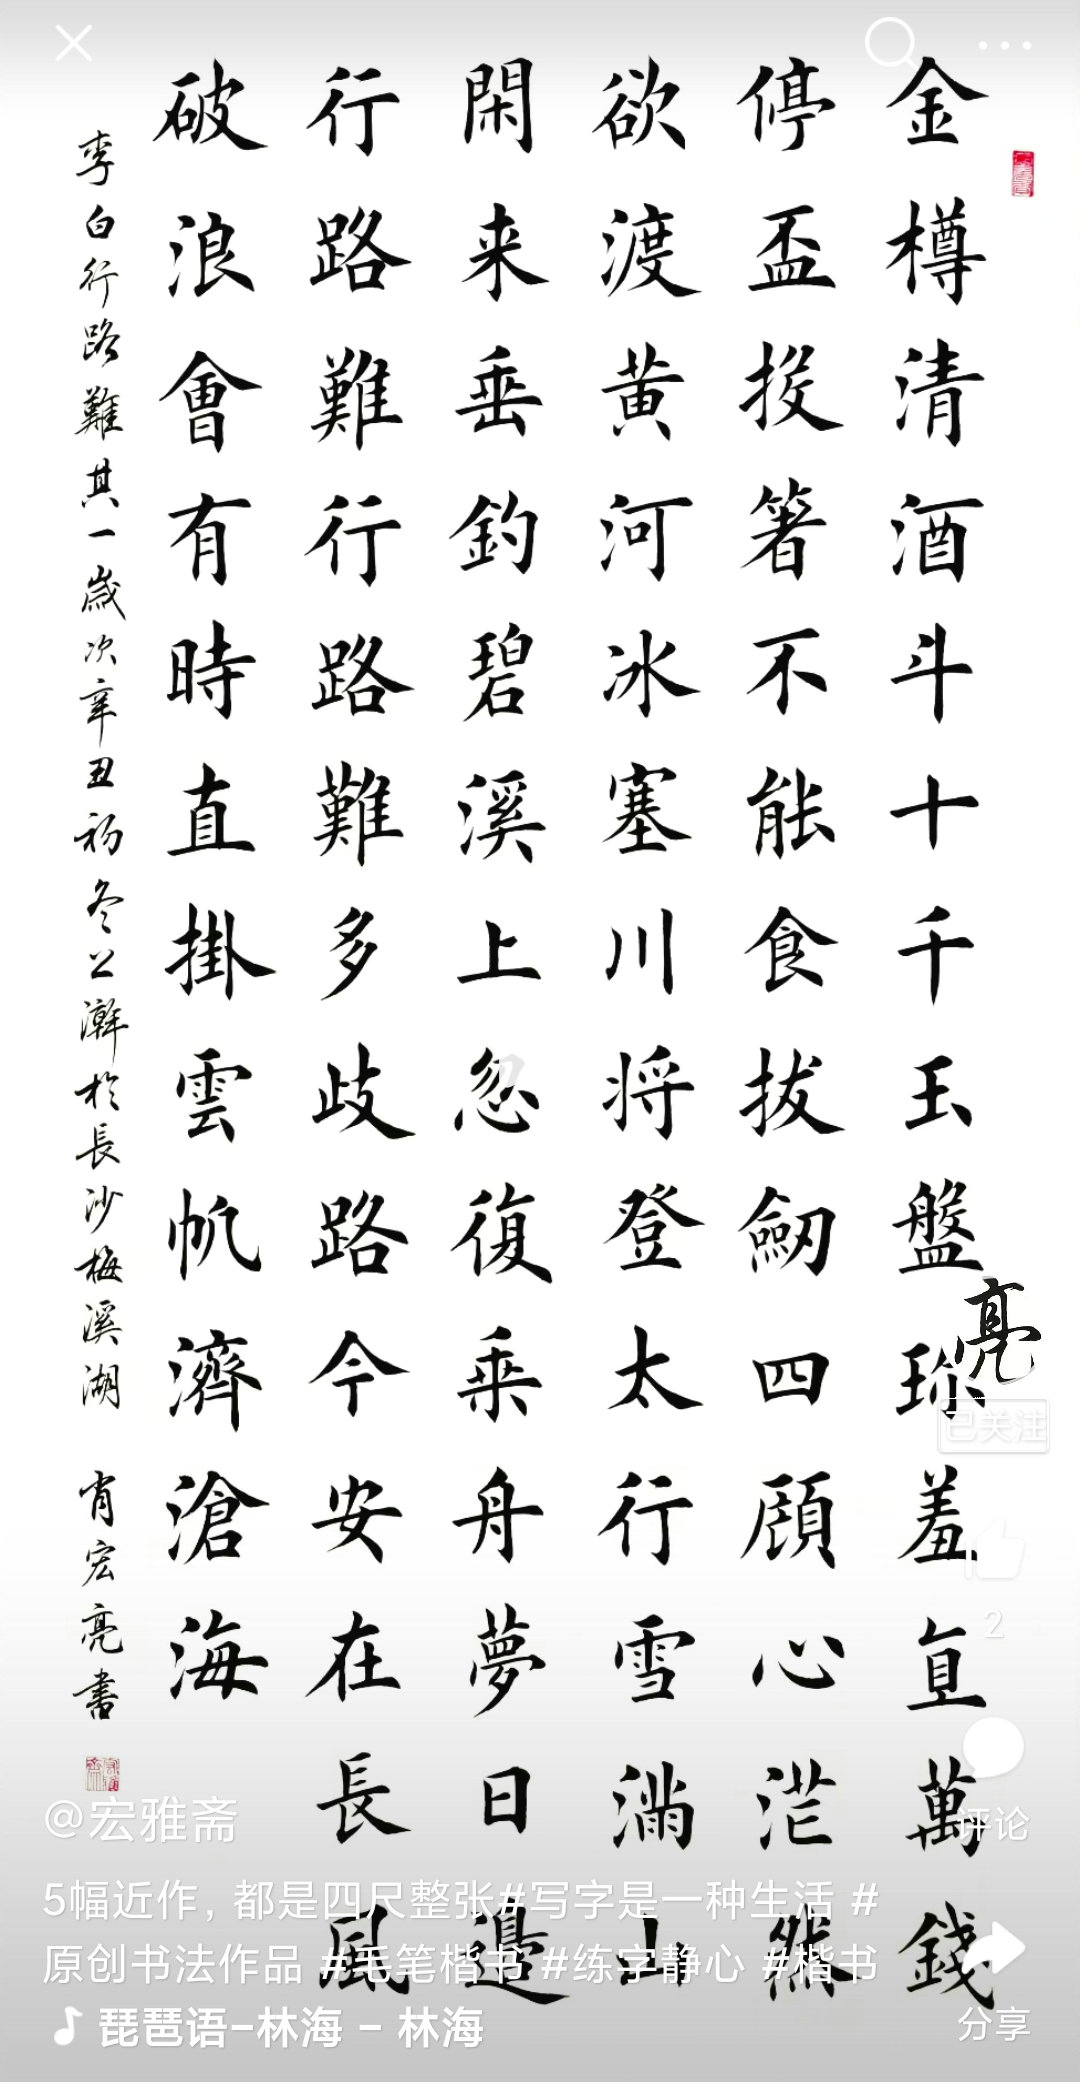 金樽清酒斗十千玉盤珎羞直萬錢
停盃投箸不能食拔劒四顧心茫然
欲渡黄河冰塞川将登太行雪滿山
閑来垂釣碧溪上忽復乗舟夢日邉
行路難行路難多歧路今安在長風
破浪會有時直掛雲帆濟滄海
李白行路難其一歲次辛丑初冬之澣於長沙梅溪湖
肖宏亮書
亮
已关注
2
评论
分享
@宏雅斋
5幅近作，都是四尺整张#写字是一种生活 #
原创书法作品 #毛笔楷书 #练字静心 #楷书
琵琶语-林海 - 林海